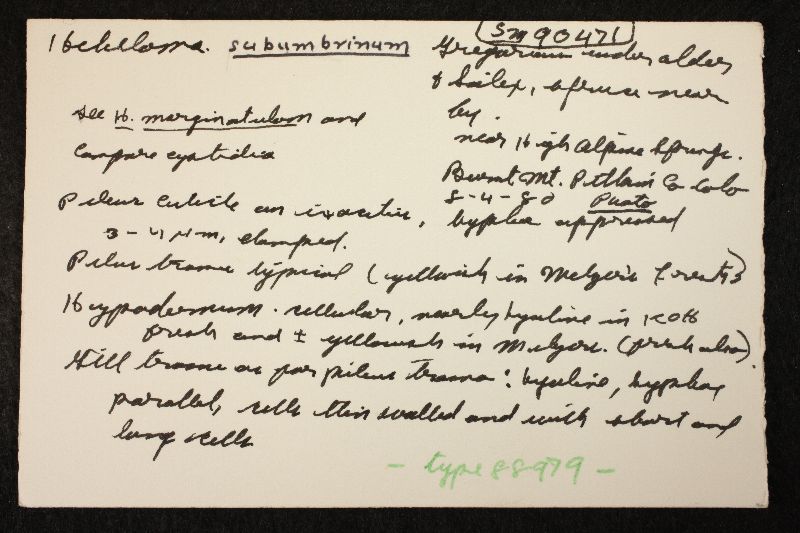 Hebeloma. subumbrinum
Sm 90471
Gregarious under alder
& Salix, spruce near
by.
near High Alpine Springs.
Burnt Mt. Pitkin Co Colo
8-4-80 Photo
see H. marginatulum and
compare cystidia
Pileus cuticle an ixocutis, hyphae appressed
3-4 µm, clamped.
Pileus trama typical (yellowish in Melzer's (fresh)
Hypodermium cellular, nearly hyaline in KOH
fresh and ± yellowish in Melzers. (fresh also)
Gill trama as for pileus trama: hyaline, hyphae
parallel, cells thin walled and with short and
long cells
- type 88979 -